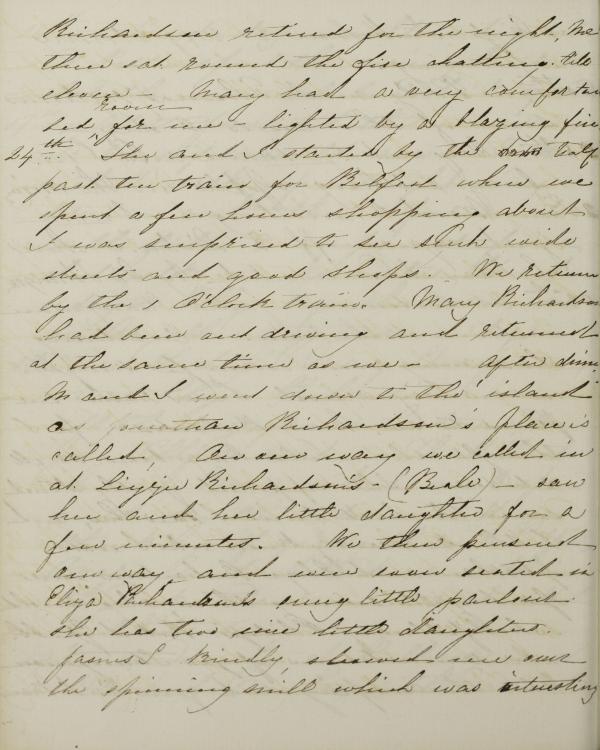 Richardson retired for the night, We
then sat round the fire chatting till
eleven - Mary had a very comfortable
bed room for me - lighted by a blazing fire
24th. She and I started by the half
past ten train for Belfast where we
spent a few hours shopping about
I was surprised to see such wide
streets and good shops. We return
by the 1 O'clock train. Mary Richardson
had been out driving and returned
at the same time as we - After dinn
M and I went down to the island
as Jonathan Richardson's place is
called, On our way we called in
at Richardson's - (Beale) - saw
her and her little daughter for a
few minutes. We then pursued
our way and were soon seated in
Eliza Richardson's snug little parlour
She has two nice little daughters.
James kindly showed me over
the spinning mill which was interesting